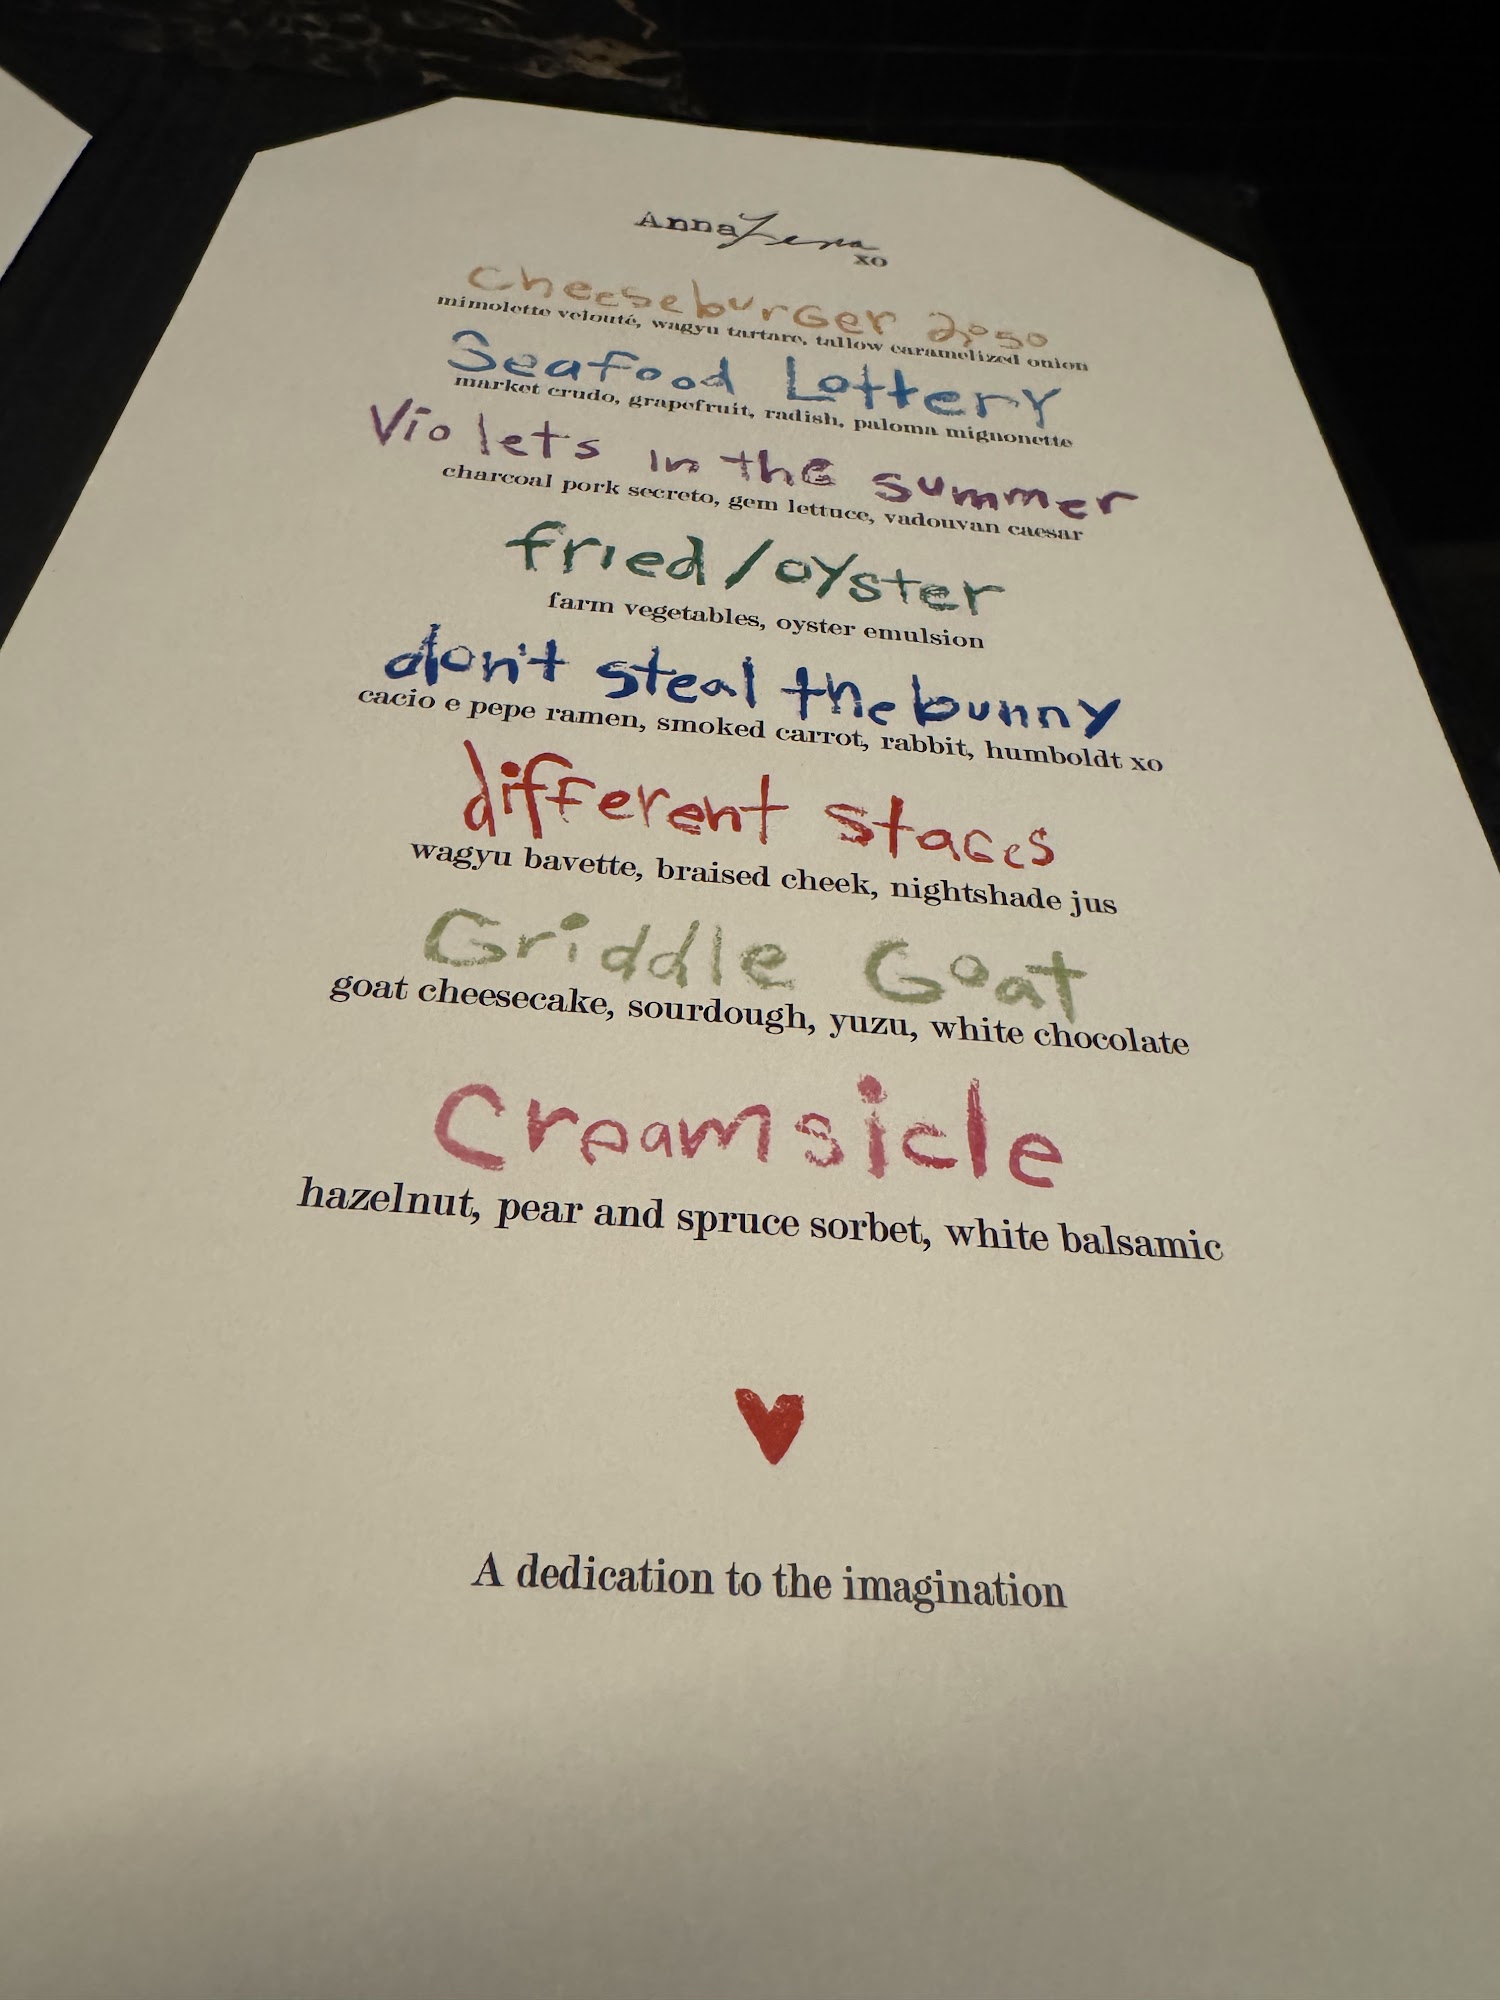 Anna Lena
xo
Cheeseburger 2050
mimolette velouté, wagyu tartare, tallow caramelized onion
Seafood Lottery
market crudo, grapefruit, radish, paloma mignonette
Violets in the summer
charcoal pork secreto, gem lettuce, vadouvan caesar
fried/oyster
farm vegetables, oyster emulsion
don't steal the bunny
cacio e pepe ramen, smoked carrot, rabbit, humboldt xo
different stages
wagyu bavette, braised cheek, nightshade jus
Griddle Goat
goat cheesecake, sourdough, yuzu, white chocolate
Creamsicle
hazelnut, pear and spruce sorbet, white balsamic
A dedication to the imagination